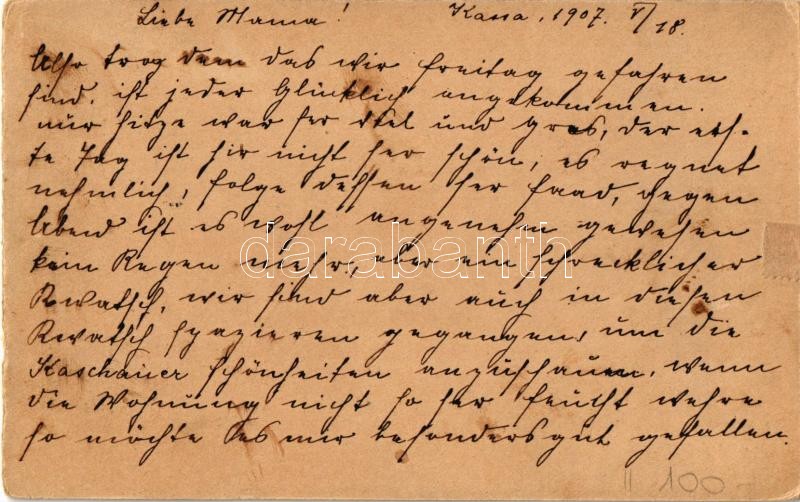 Liebe Mama! Kassa, 1907. V/18.
Also troz dem das wir Freitag gefahren
sind, ist jeder Glücklich angekommen.
nur hitze war ser viel und gros, der ers-
te Tag ist hir nicht ser schön, es regnet
nehmlich, folge dessen ser faad, gegen
Abend ist es wohl angenehm gewesen
kein Regen mehr, aber ein schrecklicher
Kwatsch, wir sind aber auch in diesen
Kwatsch spazieren gegangen, um die
Kaschauer schönheiten anzuschauen, wenn
die Wohnung nicht so ser feucht wehre
so möchte es mir besonders gut gefallen.
darabanth
100